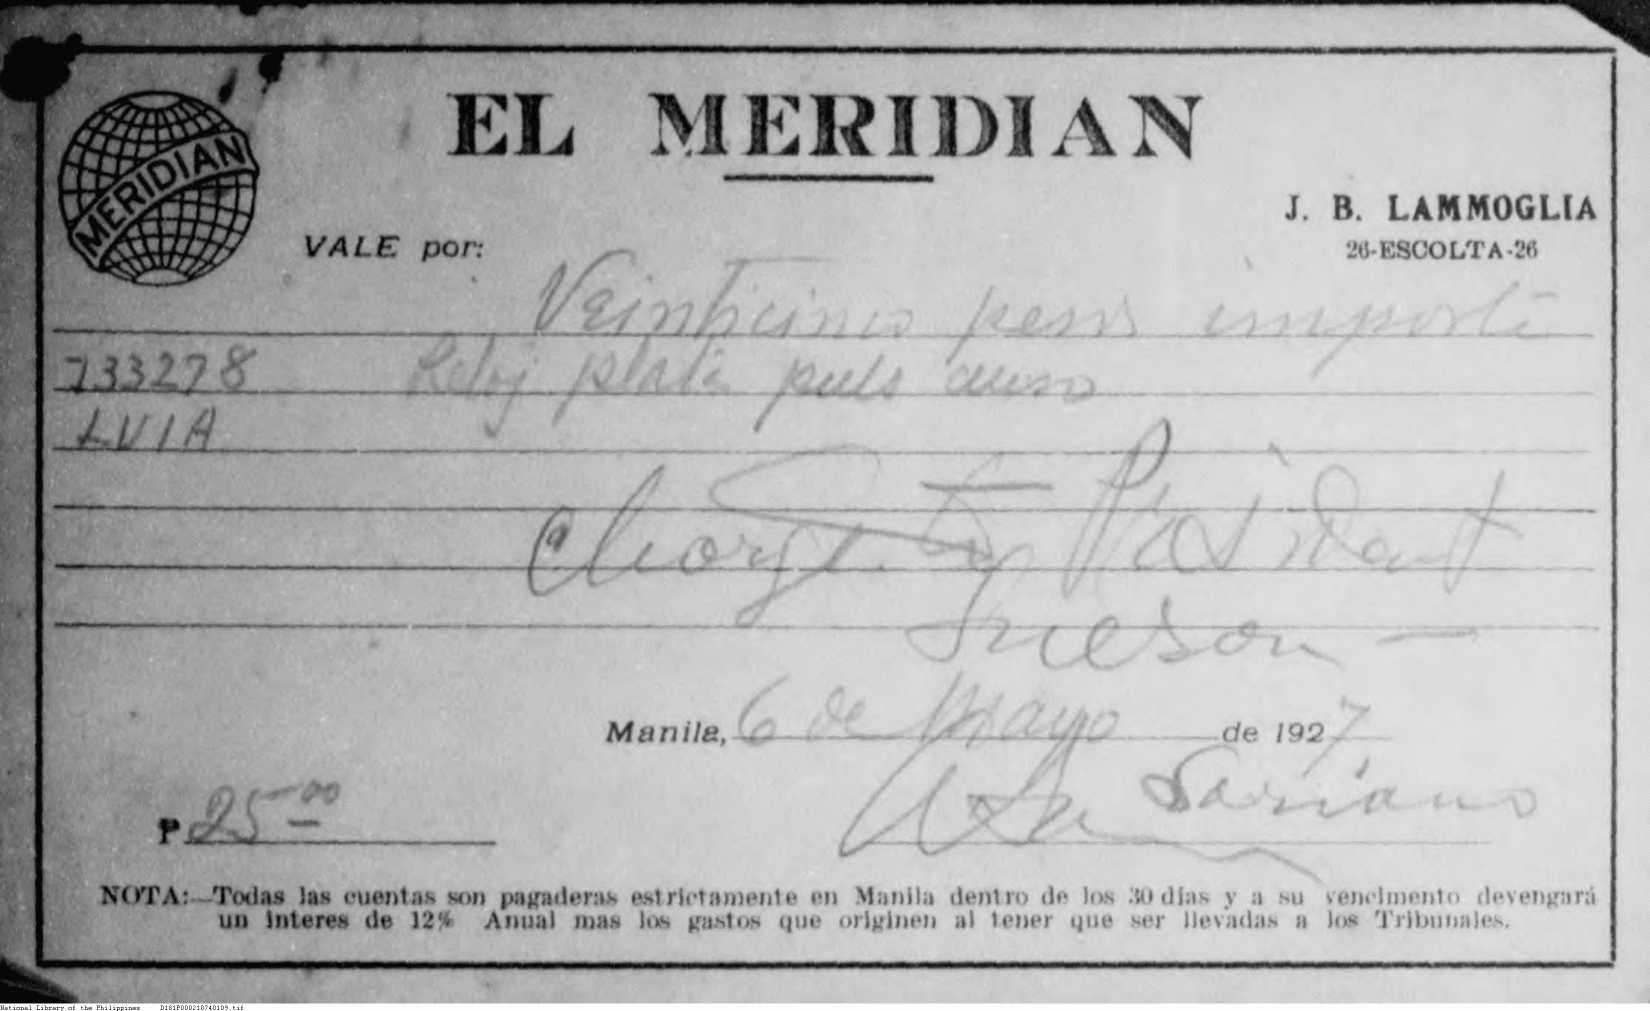 EL MERIDIAN
MERIDIAN
J. B. LAMMOGLIA
26-ESCOLTA-26
VALE por:
Veinticinco pesos importe
733278 Reloj plata puls
LVIA
Charge to President
Quezon —
Manila, 6 de Mayo de 1927
Soriano
₱ 25.00
NOTA:—Todas las cuentas son pagaderas estrictamente en Manila dentro de los 30 días y a su vencimento devengará
un interes de 12% Anual mas los gastos que originen al tener que ser llevadas a los Tribunales.
National Library of the Philippines D181P000210740109.tif